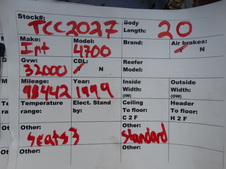 Stock#: TCC2027 Body Length: 20
Make: Int Model: 4700 Brand: Air brakes: N
Gvw: 32000 CDL: N Reefer Model:
Mileage: 98442 Year: 1999 Inside Width: Outside Width:
Temperature range: Elect. Stand by: Ceiling To floor: Header To floor:
C 2 F H 2 F
Other: Seats 3 Other: Other: Standard Other:
Other: Other: